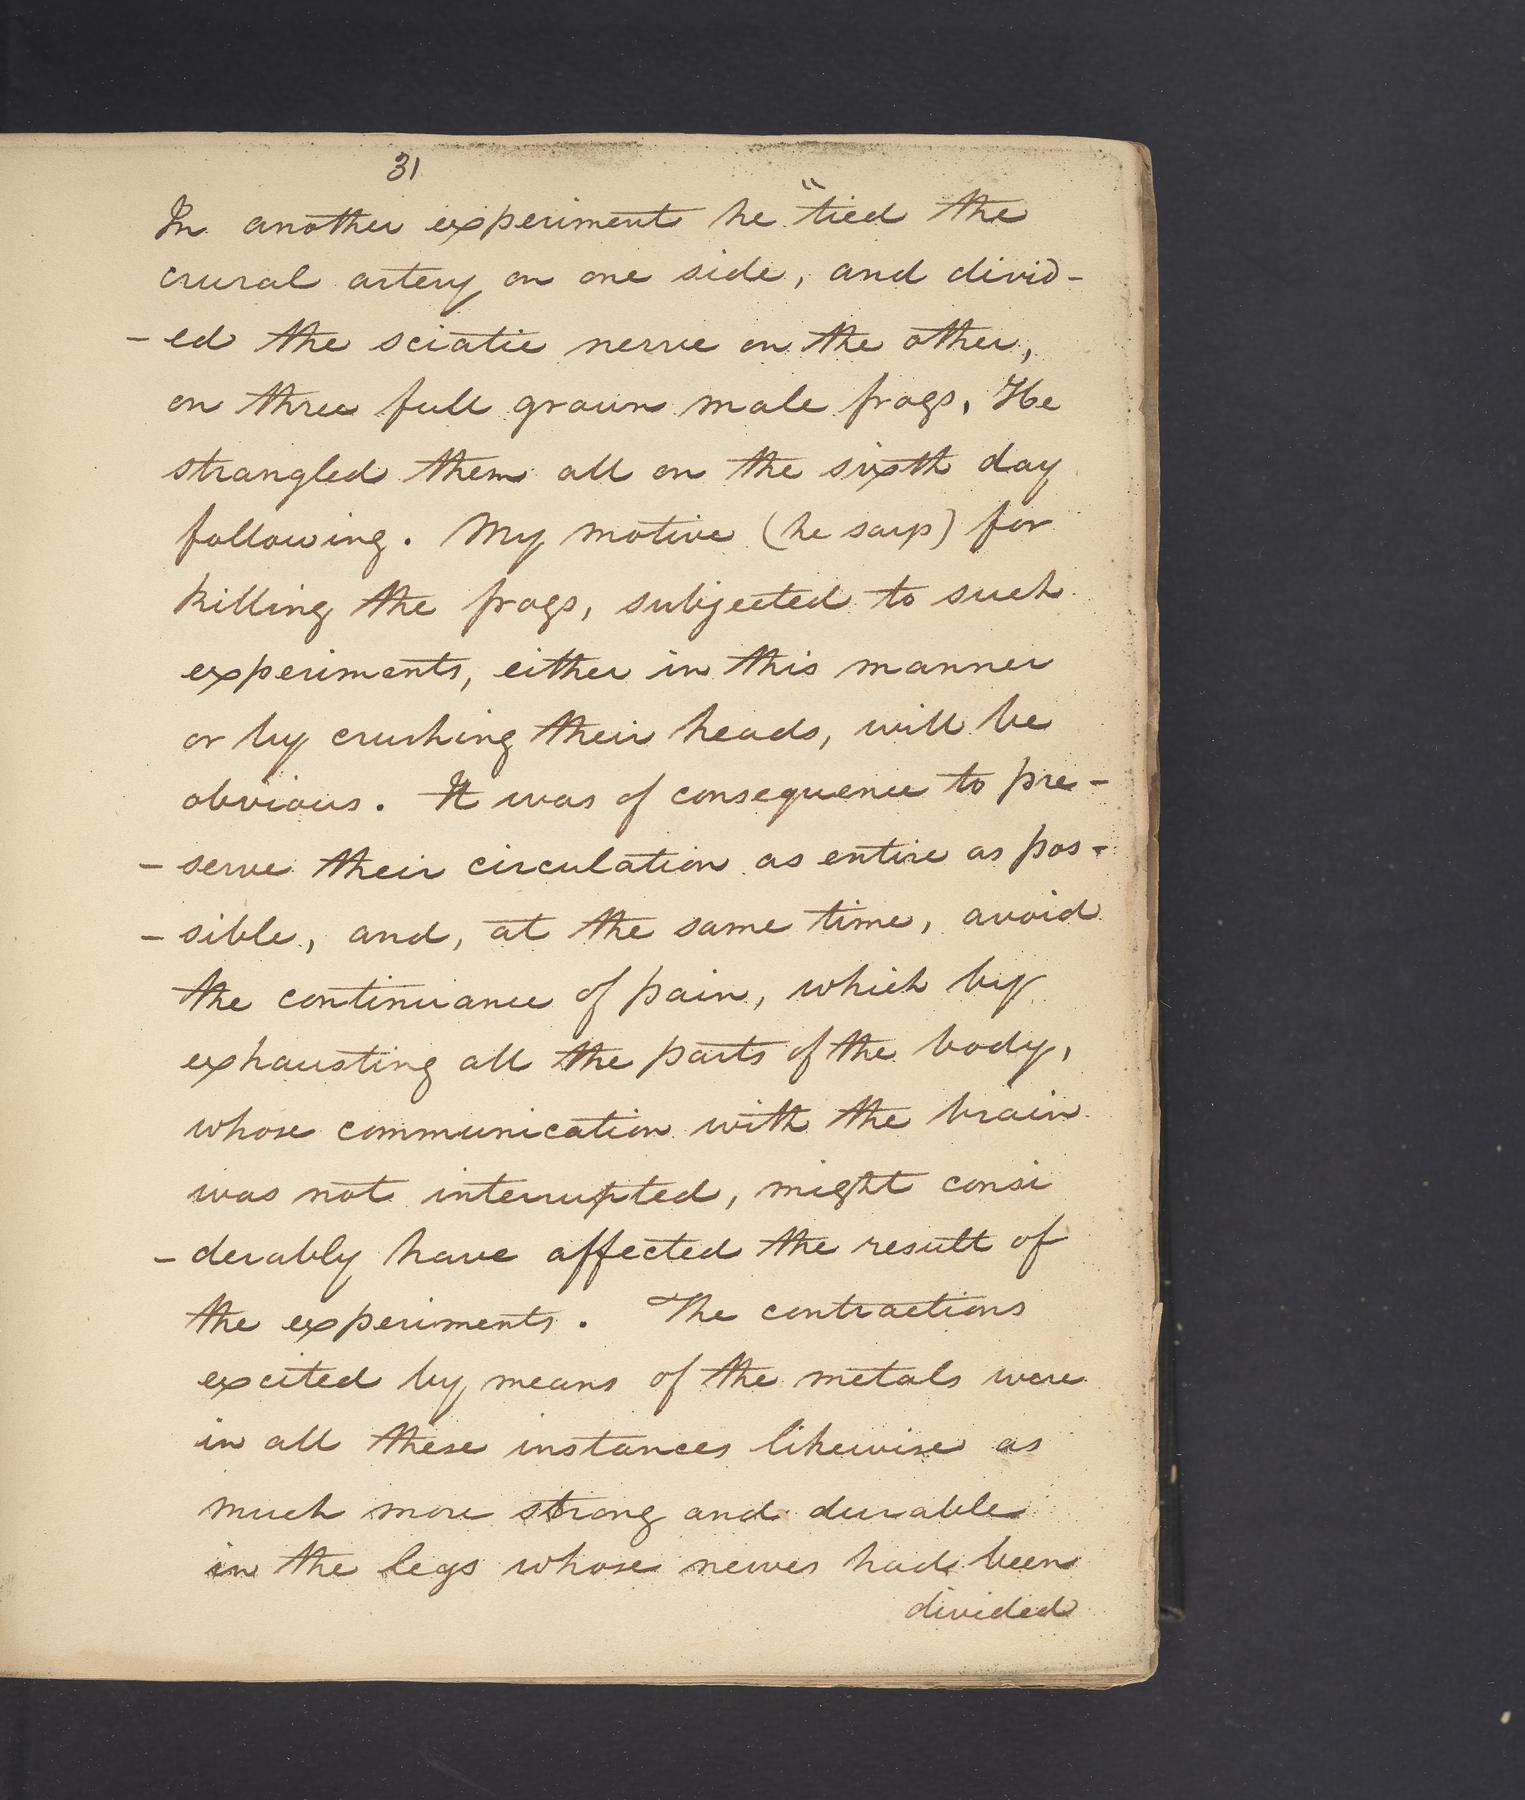 31
In another experiment he "tied the
crural artery on one side, and divid-
-ed the sciatic nerve on the other,
on three full grown male frogs. He
strangled them all on the sixth day
following. My motive (he says) for
killing the frogs, subjected to such
experiments, either in this manner
or by crushing their heads, will be
obvious. It was of consequence to pre-
-serve their circulation as entire as pos-
-sible, and, at the same time, avoid
the continuance of pain, which by
exhausting all the parts of the body,
whose communication with the brain
was not interrupted, might consi
-derably have affected the result of
the experiments. The contractions
excited by means of the metals were
in all these instances likewise as
much more strong and durable
in the legs whose nerves had been
divided